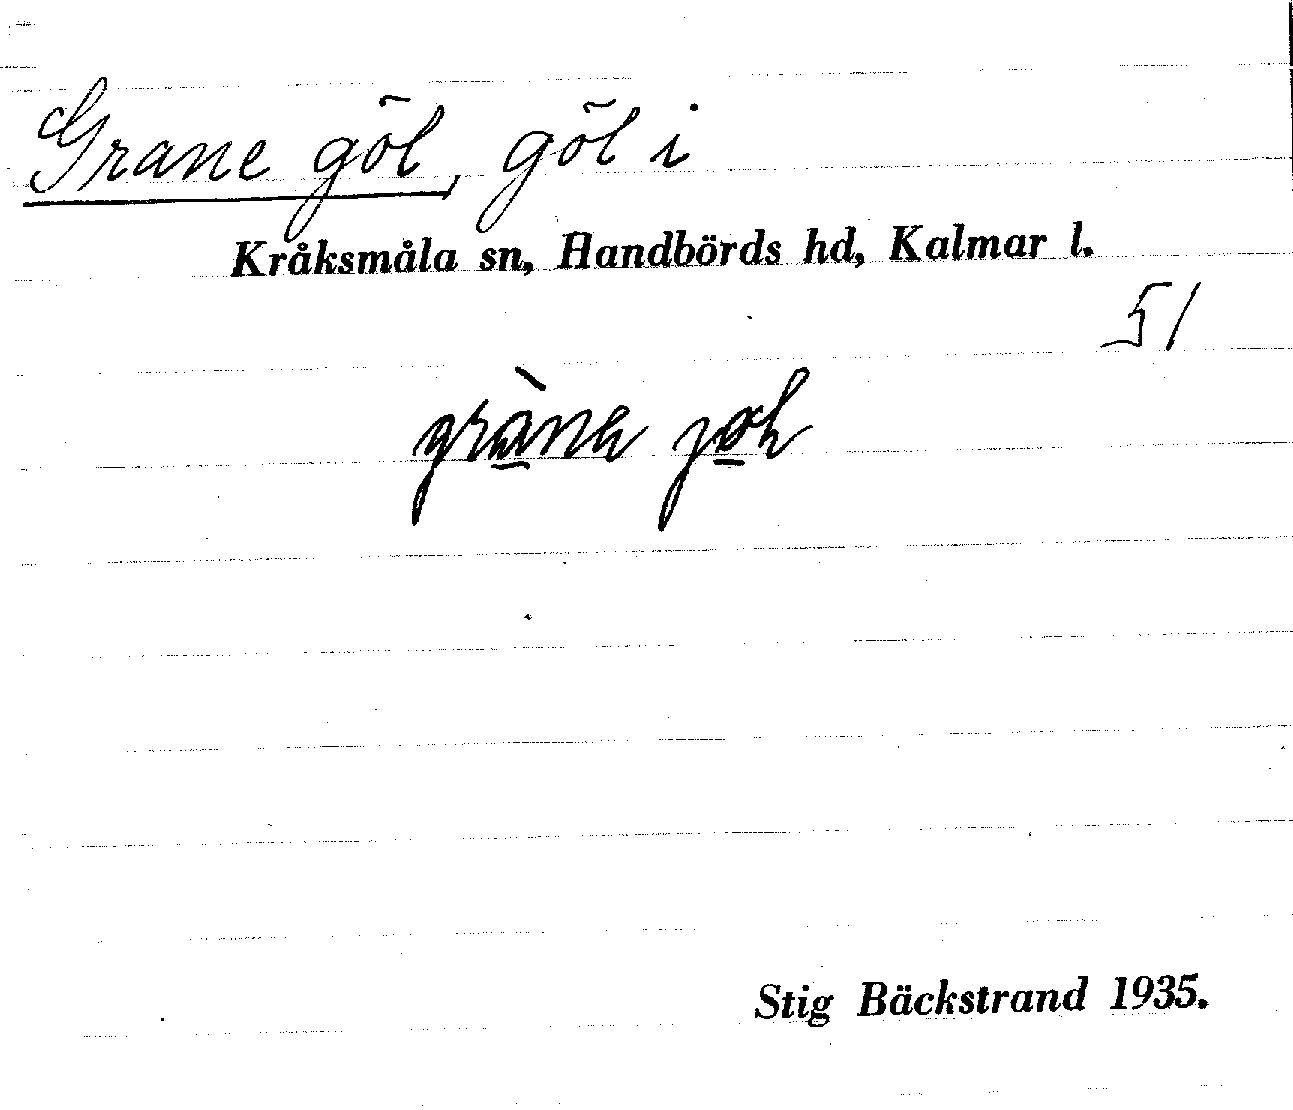 Grane göl, göl i
Kråksmåla sn, Handbörds hd, Kalmar l.
51
Stig Bäckstrand 1935.